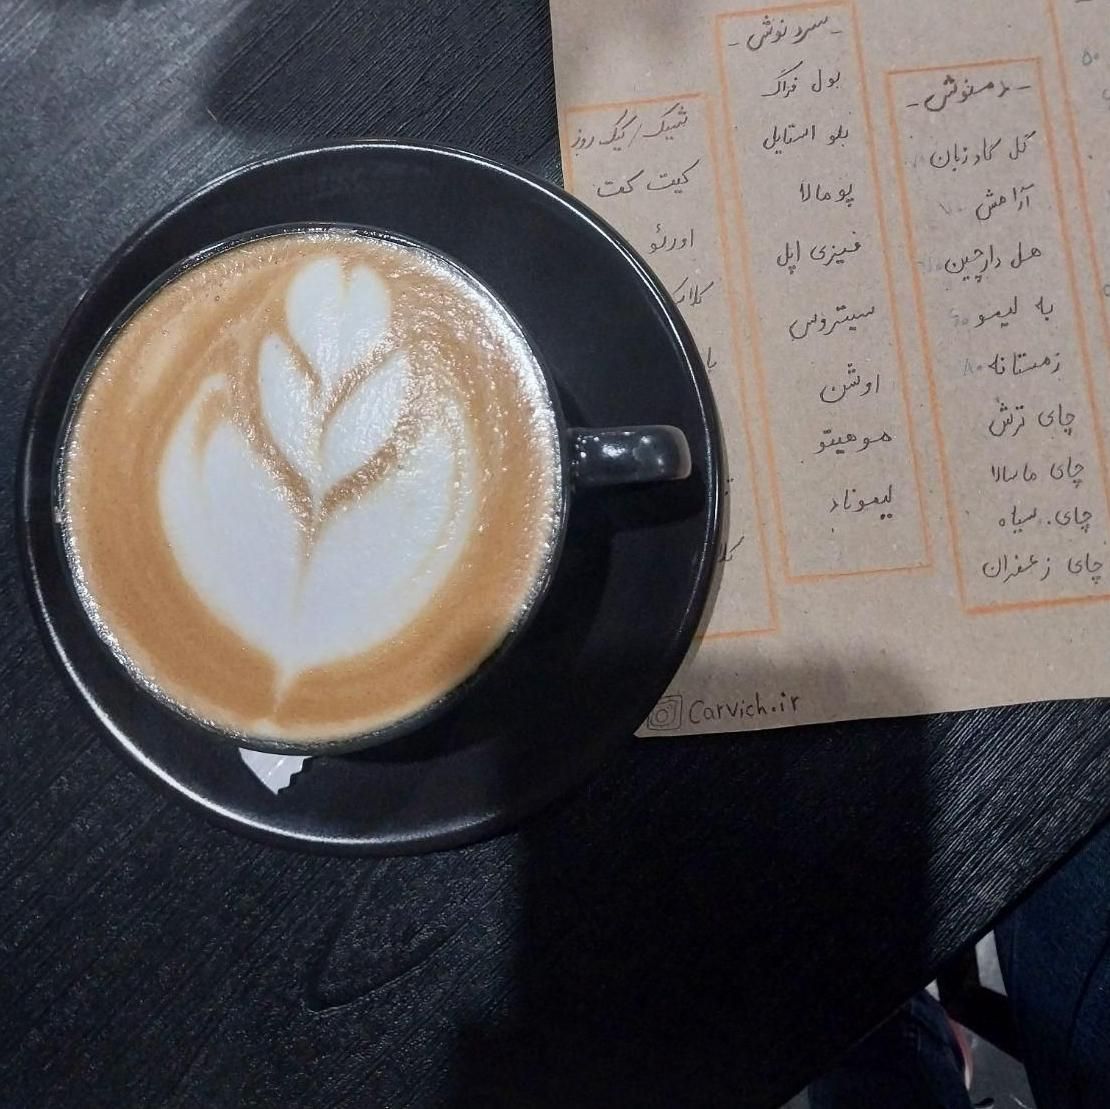 - دمنوش -
گل گاو زبان
آرامش
هل دارچین
به لیمو
زمستانه ۸۰
چای ترش
چای ماسالا
چای سیاه
چای زعفران
- سرد نوش -
بول فراگ
بلو استایل
پومالا
فیزی اپل
سیتروس
اوشن
موهیتو
لیموناد
کیک روز
کیت کت
اورئو
Carvich.ir